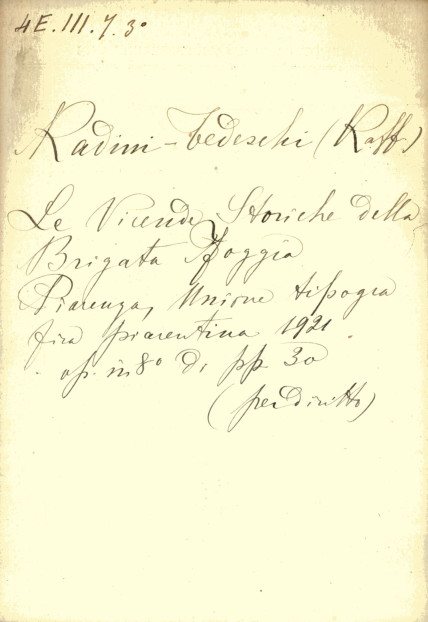 4E.III.7.3°
Radini-Tedeschi (Raff.)
Le Vicende Storiche della
Brigata Foggia
Piacenza, Unione tipogra
fica piacentina 1921
op. in 8° di pp 30
(per diritto)